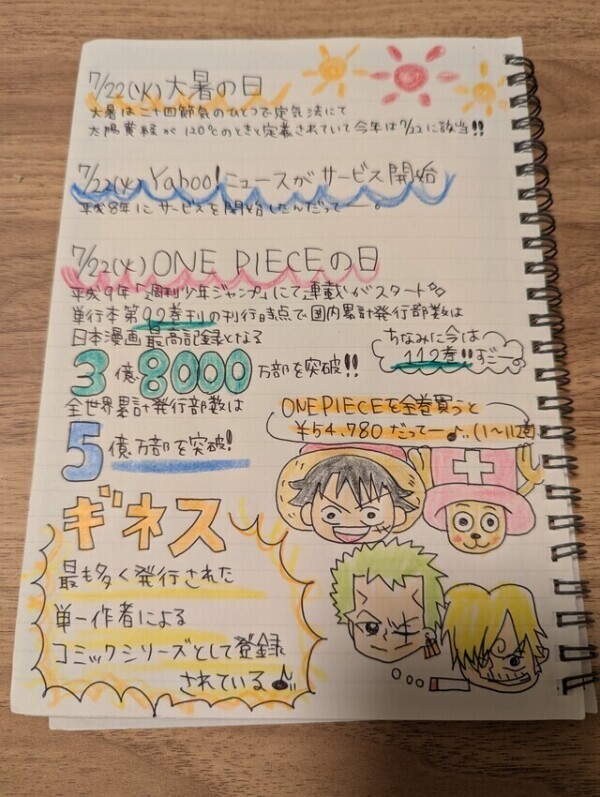 7/22(火)大暑の日
大暑は二十四節気のひとつで定気法にて
太陽黄経が120℃のときと定義されていて今年は7/22に該当!!
7/22(火) Yahoo!ニュースがサービス開始
平成8年にサービスを開始したんだってー。
7/22(火) ONE PIECEの日
平成9年「週刊少年ジャンプ」にて連載がスタート
単行本第92巻刊の刊行時点で国内累計発行部数は
日本漫画最高記録となる
ちなみに今は
112巻!!すごー。
3億8000万部を突破!!
全世界累計発行部数は
5億万部を突破!
ONE PIECEを全巻買うと
¥54,780だってー♪..(1~112巻)
ギネス
最も多く発行された
単一作者による
コミックシリーズとして登録
されている♪..